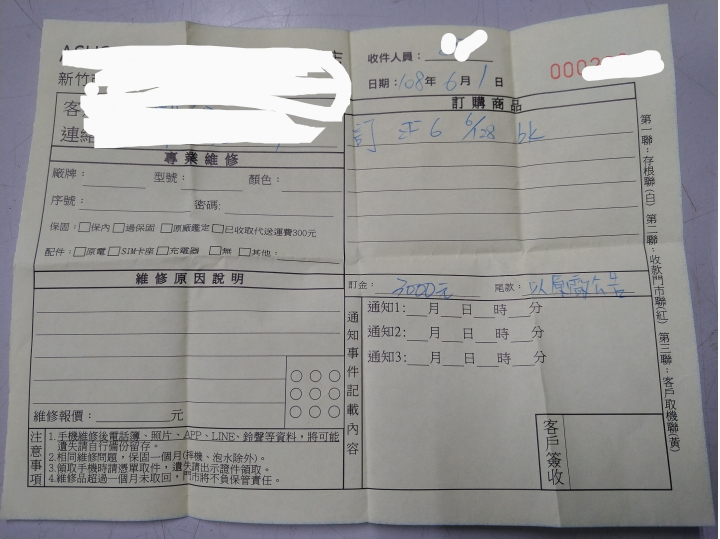 收件人員:
新竹
日期:108年 6月 1日
000
客
連絡
訂購商品
訂 正6 6/128 bk
專業維修
廠牌: 型號: 顏色:
序號: 密碼:
保固:□保內 □過保固 □原廠鑑定 □已收取代送運費300元
配件:□原電 □SIM卡座 □充電器 □無 □其他:
維修原因說明
維修報價: 元
訂金: 3000元 尾款: 以原廠公告
通知事件記載內容
通知1: 月 日 時 分
通知2: 月 日 時 分
通知3: 月 日 時 分
客戶簽收
注意事項
1.手機維修後電話簿、照片、APP、LINE、鈴聲等資料,將可能
遺失請自行備份留存。
2.相同維修問題,保固一個月(摔機、泡水除外)。
3.領取手機時請憑單取件,遺失請出示證件領取。
4.維修品超過一個月未取回,門市將不負保管責任。
第一聯:存根聯(白) 第二聯:收款門市聯(紅) 第三聯:客戶取機聯(黃)